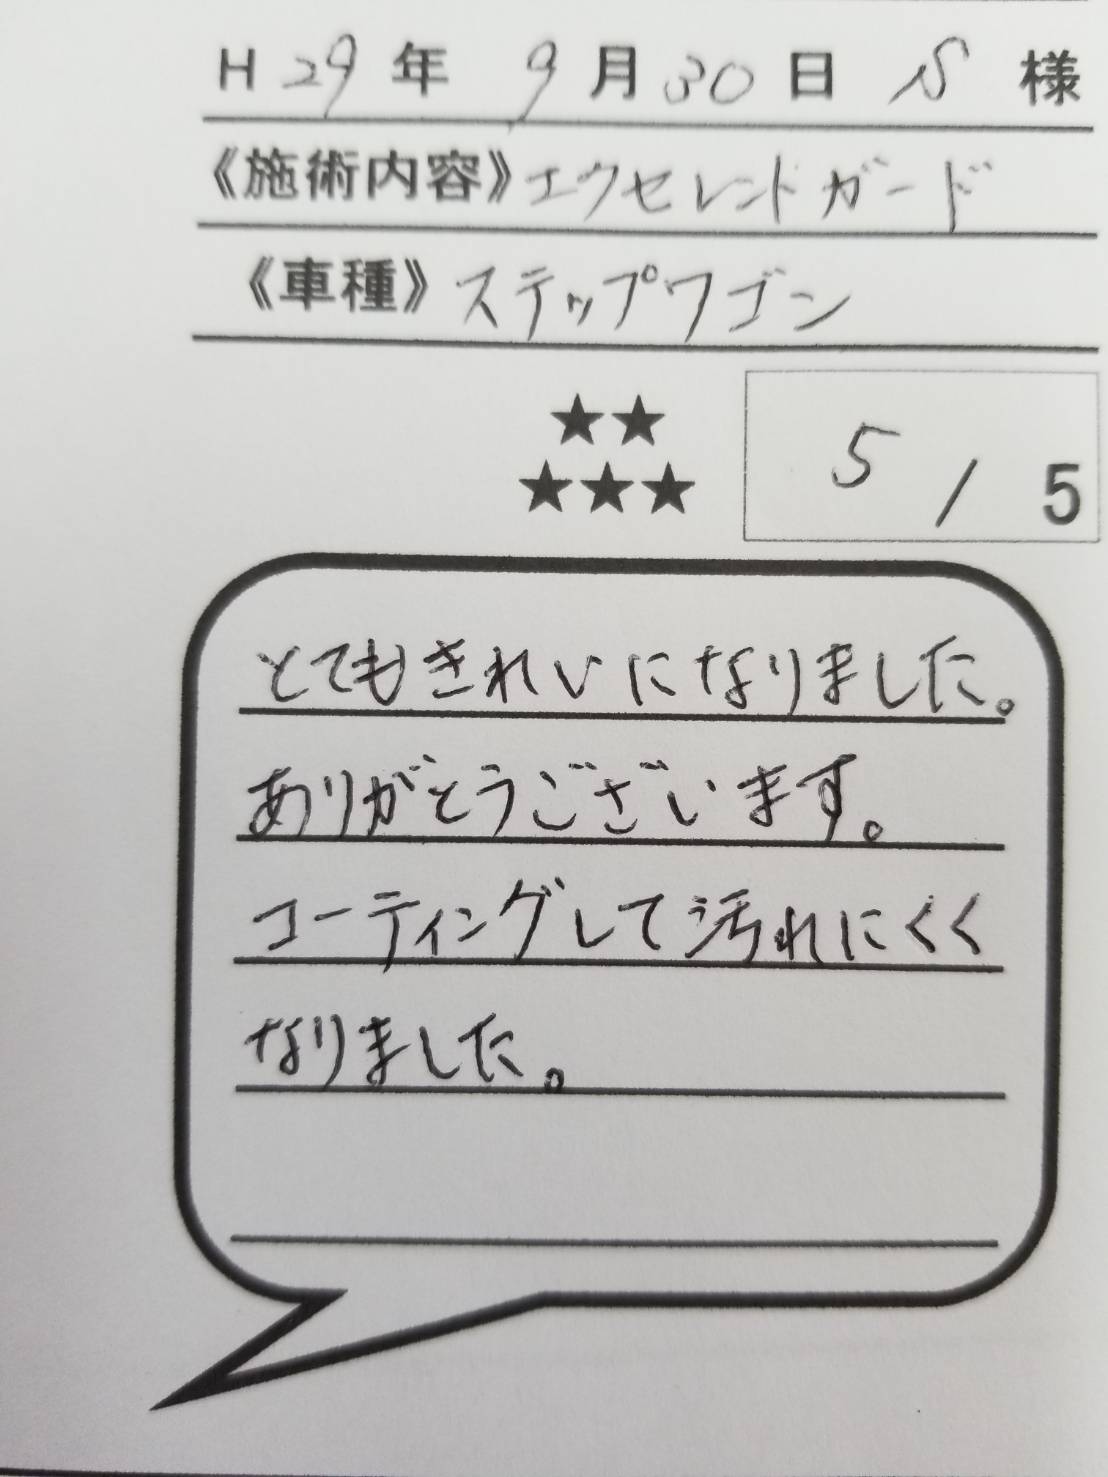 H 29 年 9 月 30 日 S 様
《施術内容》エクセレントガード
《車種》ステップワゴン
★★
★★★
5 / 5
とてもきれいになりました。
ありがとうございます。
コーティングして汚れにくく
なりました。